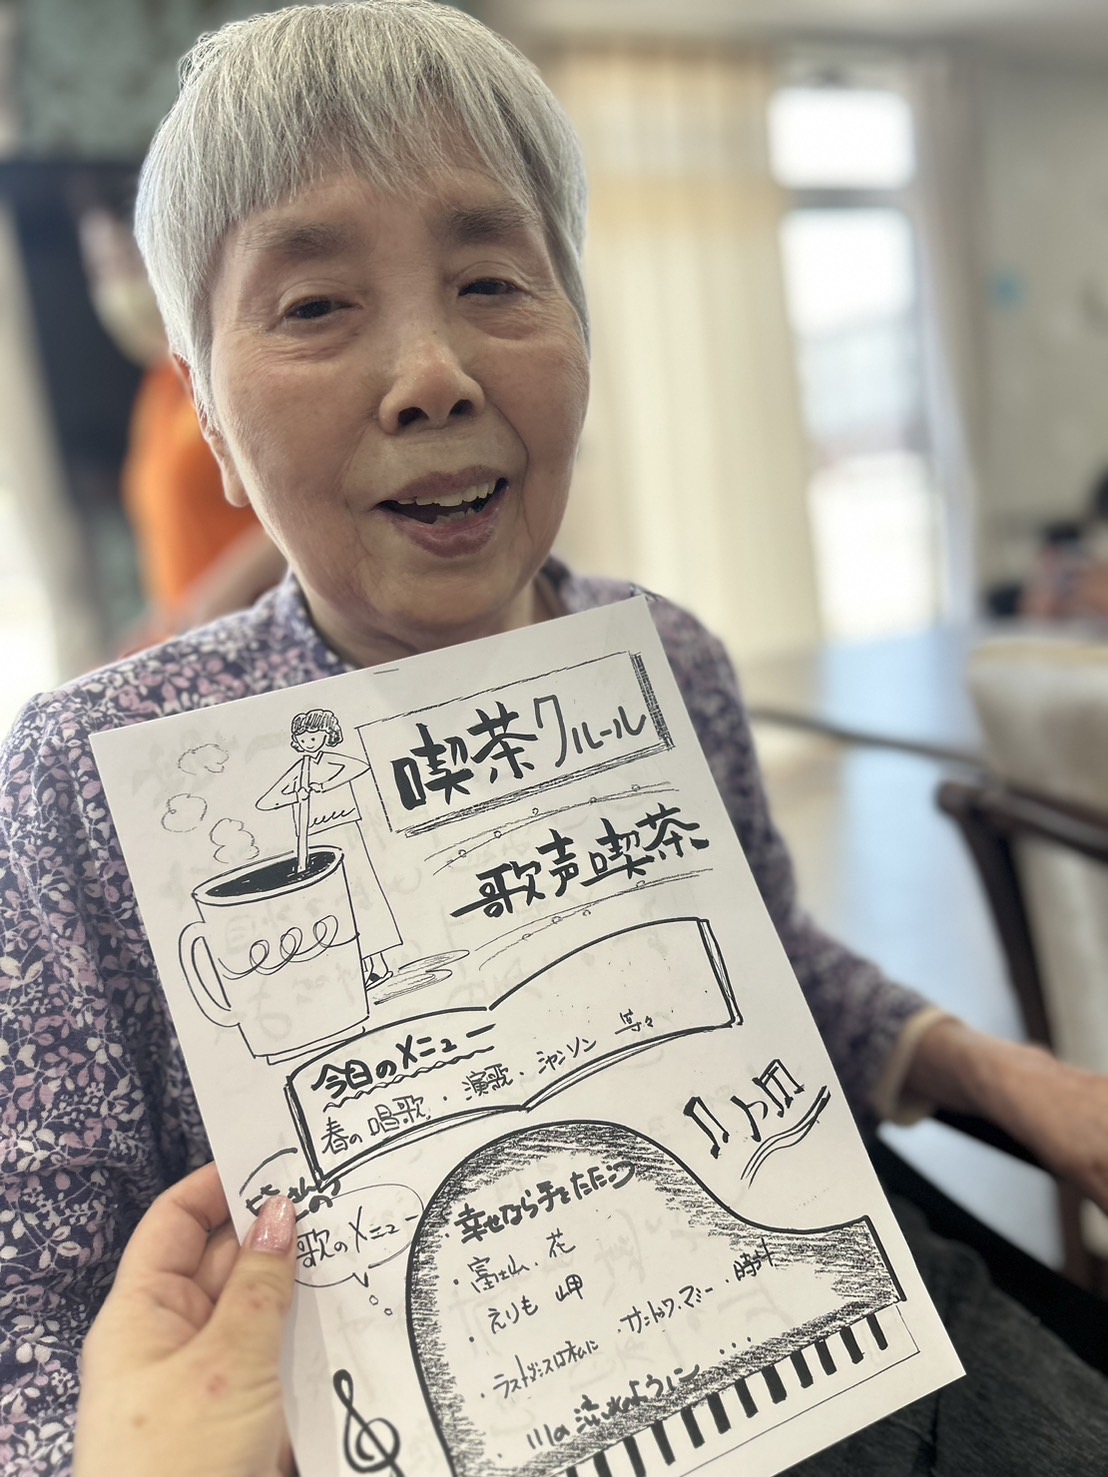 喫茶クルール
歌声喫茶
今日のメニュー
春の唱歌・演歌・シャンソン 等々
皆さんの
歌のメニュー
・幸せなら手をたたこう
・富士山・花
・えりも岬
・ラストダンスは私に ・サントワ・マミー・時計
・川の流れのように・・・